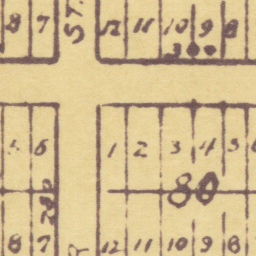 8 7 ST. 12 11 10 9 8
300
5 6 1 2 3 4 5
80
8 7 12 11 10 9 8